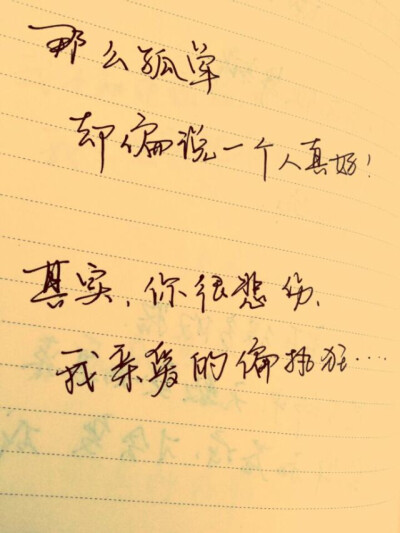 那么孤单
却偏说一个人真好！
其实，你很悲伤，
我亲爱的偏执狂····